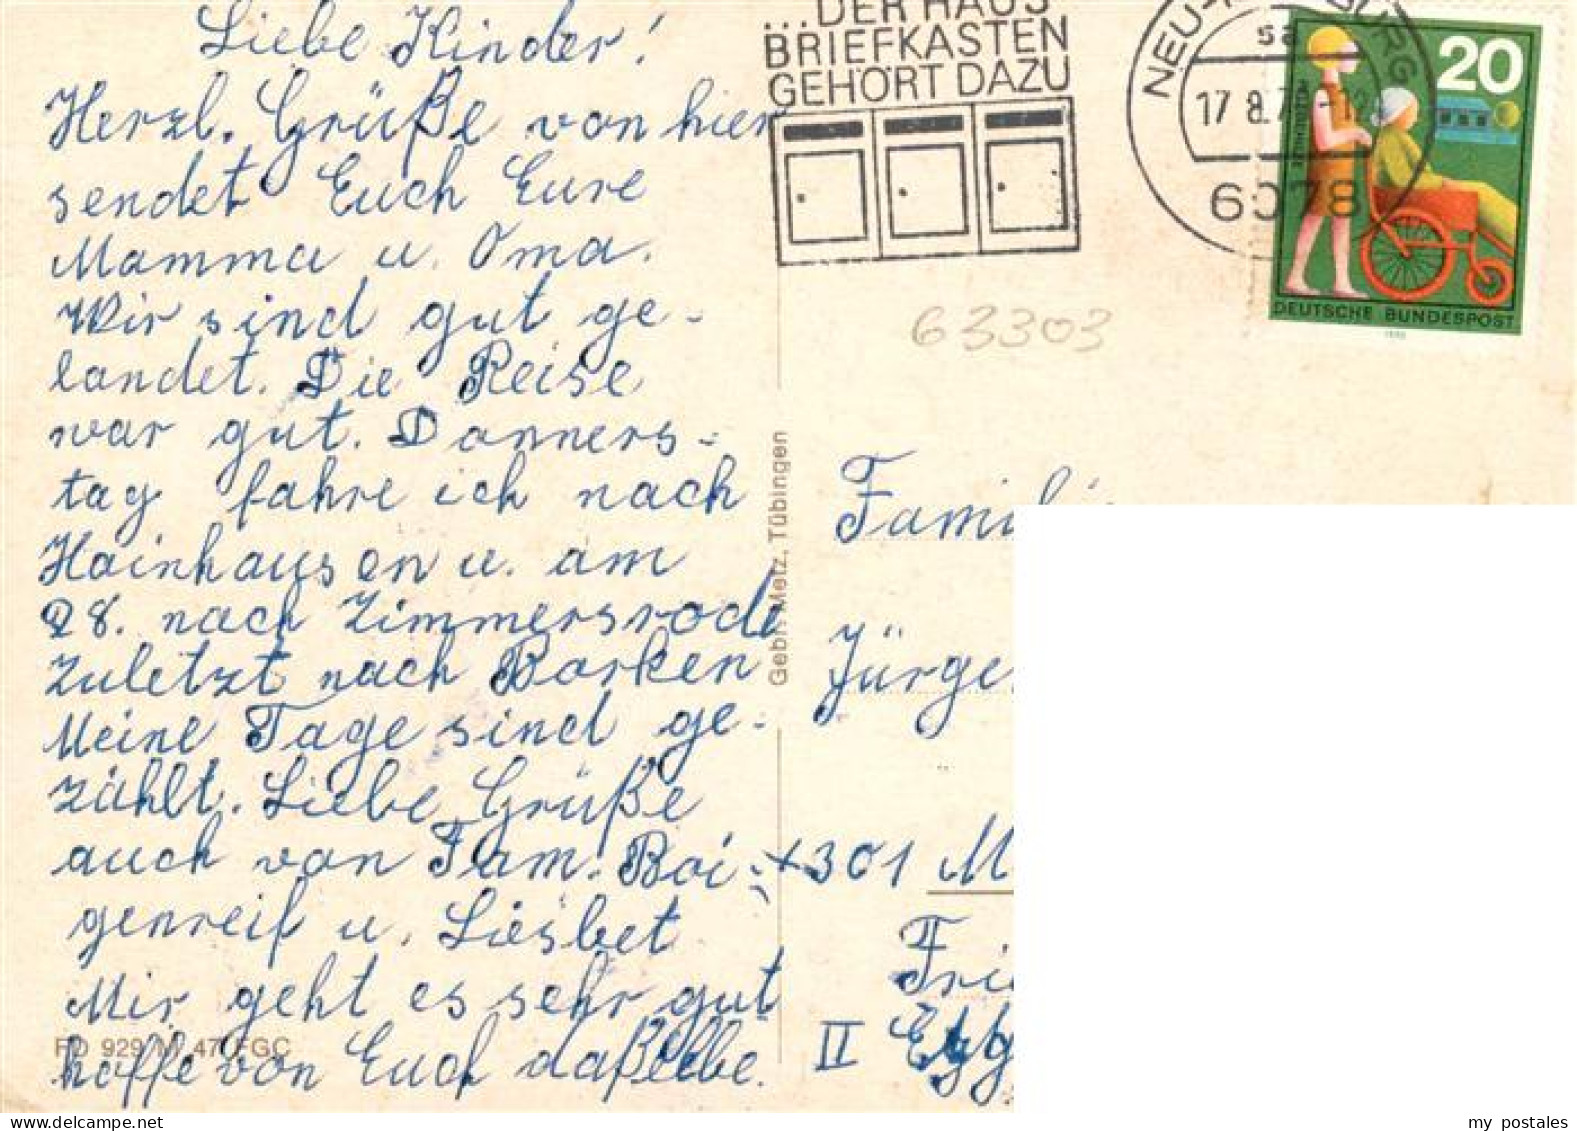 Liebe Kinder!
Herzl. Grüße von hier
sendet Euch Eure
Mamma u. Oma.
Wir sind gut ge-
landet. Die Reise
war gut. Donners-
tag fahre ich nach
Hainhausen u. am
28. nach Zimmersrode
zuletzt nach Borken
Meine Tage sind ge-
zählt. Liebe Grüße
auch von Fam. Boi-
genreif u. Liesbet
Mir geht es sehr gut
hoffe von Euch daßelbe.
FD 929 M 47 FGC
Gebr. Metz, Tübingen
...DER HAUS
BRIEFKASTEN
GEHÖRT DAZU
NEU-
BURG
sa
17.8.7
6078
20
DEUTSCHE BUNDESPOST
63303
Familie
Jürge
+301 M
Frie
II
my postales